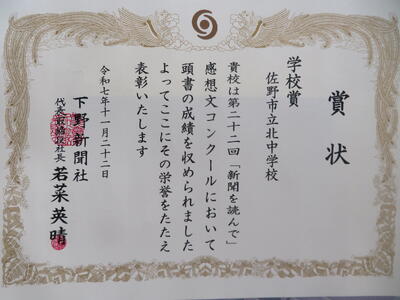 賞状
学校賞
佐野市立北中学校
貴校は第二十二回「新聞を読んで」
感想文コンクールにおいて
頭書の成績を収められました
よってここにその栄誉をたたえ
表彰いたします
令和七年十一月二十二日
下野新聞社
代表取締役社長 若菜英晴